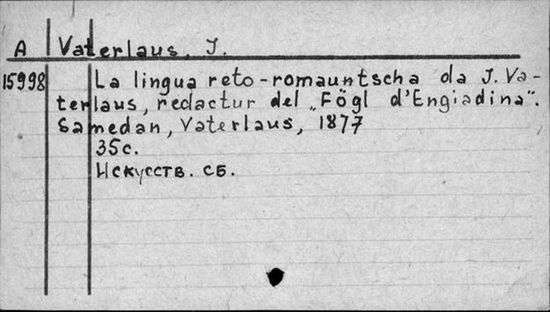 A Vaterlaus, J.
15998 La lingua reto-romauntscha da J. Va-
terlaus, redactur del „Fögl d'Engiadina".
Samedan, Vaterlaus, 1877
35c.
Искусств. сб.